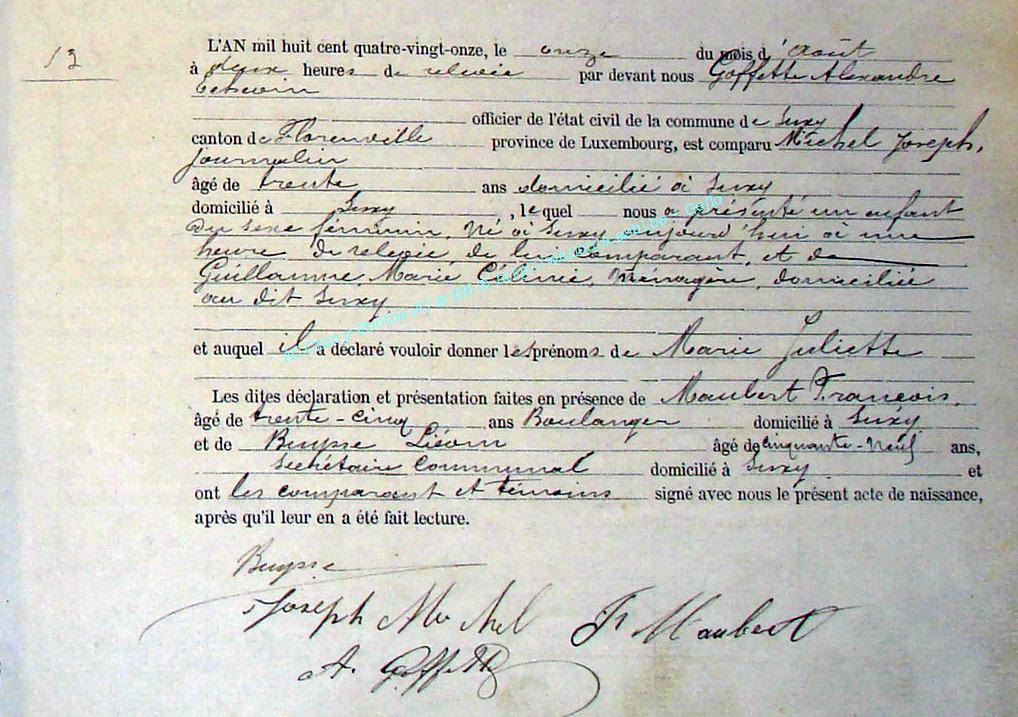 13
L'AN mil huit cent quatre-vingt-onze, le onze du mois d'août
à deux heures de relevée par devant nous Goffette Alexandre
échevin
officier de l'état civil de la commune de Suxy
canton de Florenville province de Luxembourg, est comparu Michel Joseph,
journalier
âgé de trente ans domicilié à Suxy
domicilié à Suxy, lequel nous a présenté un enfant
du sexe féminin, né à Suxy aujourd'hui à une
heure de relevée, de lui comparant, et de
Guillaume, Marie Célinie, ménagère, domiciliée
au dit Suxy
et auquel il a déclaré vouloir donner les prénoms de Marie Juliette
Les dites déclaration et présentation faites en présence de Maubert François,
âgé de trente-cinq ans Boulanger domicilié à Suxy
et de Buysse Liévin âgé de cinquante-neuf ans,
Secrétaire Communal domicilié à Suxy et
ont les comparant et témoins signé avec nous le présent acte de naissance,
après qu'il leur en a été fait lecture.
Buysse
Joseph Michel Fr Maubert
A. Goffette